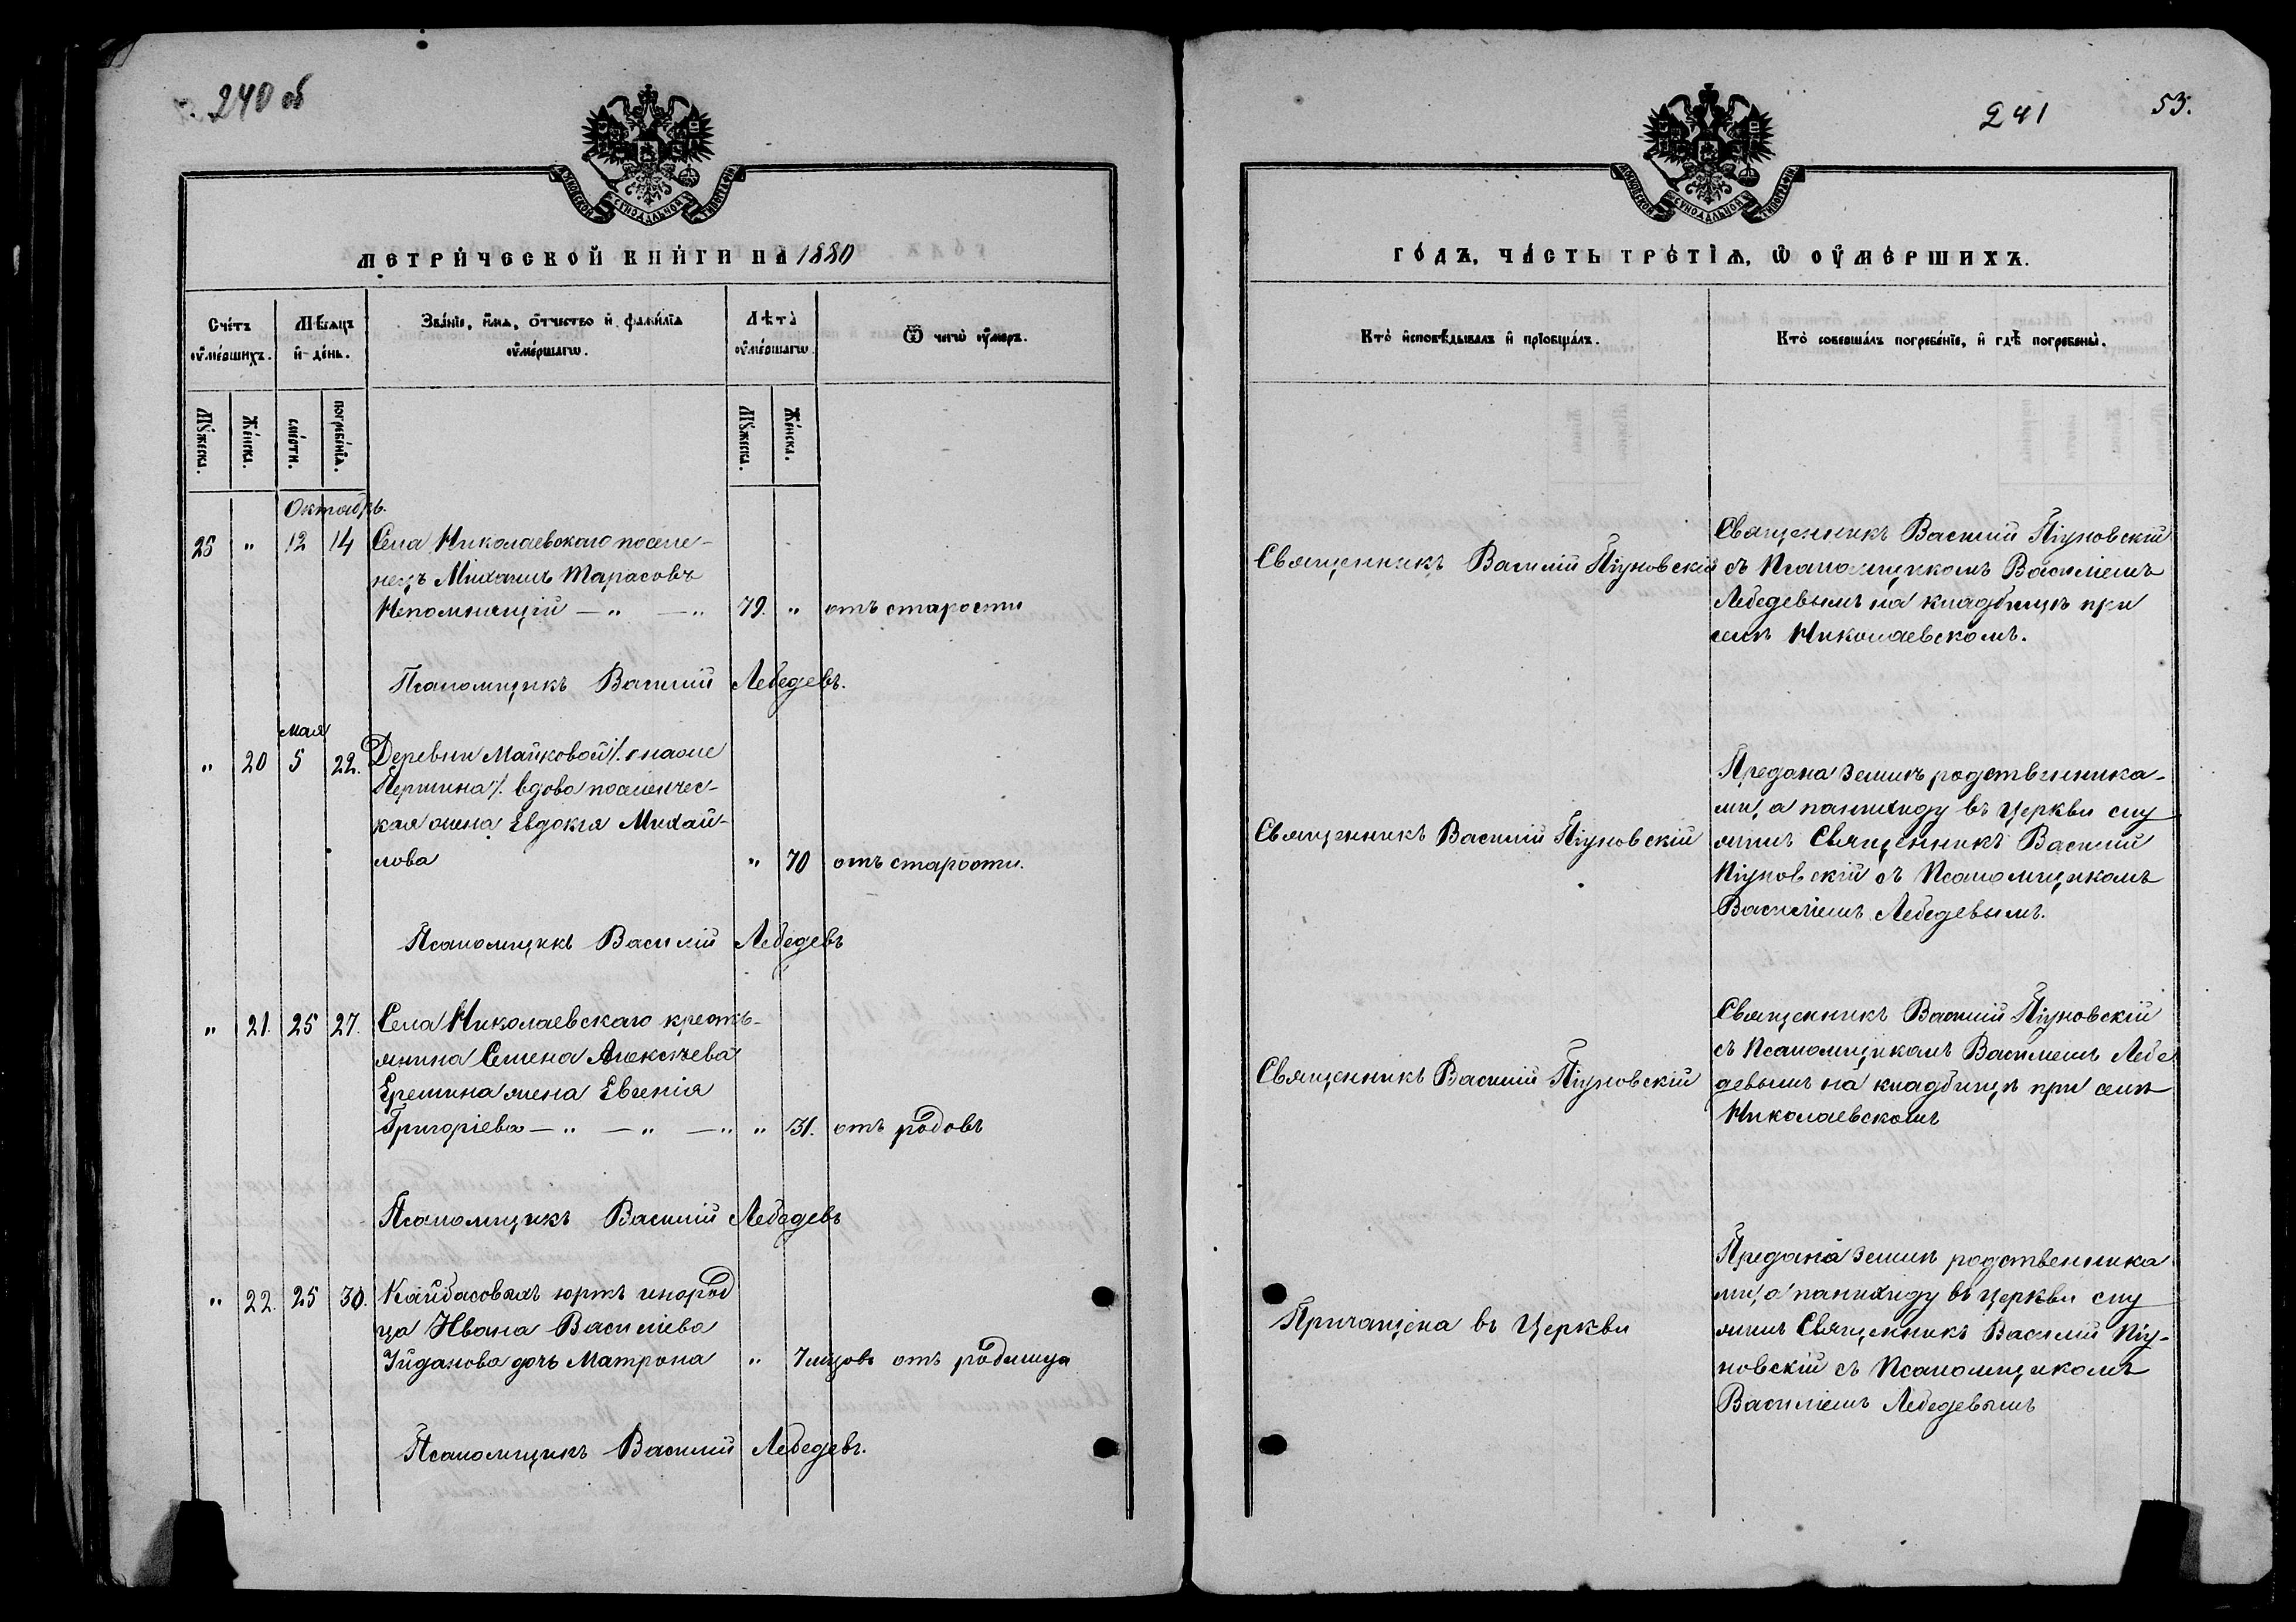 240 об
МОСКОВСКОЙ СѴНОДАЛЬНОЙ ТИПОГРАФІИ
МЕТРИ́ЧЕСКОЙ КНИ́ГИ НА 1880
Сче́тъ ᲂу҆ме́ршихъ.
Мѣ́сяцъ и҆ де́нь.
Зва́нїе, и҆́мѧ, ѻ҆́тчество и҆ фамилїѧ ᲂу҆ме́ршагѡ.
Лѣта̀ ᲂу҆ме́ршагѡ.
Ѿ чегѡ̀ ᲂу҆́меръ.
Мꙋ́жеска.
Же́нска.
сме́рти.
погребе́нїѧ.
Мꙋ́жеска.
Же́нска.
Октябрь.
25 " 12 14 Села Николаевскаго поселе-
нецъ Михаилъ Тарасовъ
Непомнящій — " — " 79. " отъ старости
Псаломщикъ Василій Лебедевъ.
Мая
" 20 5 22. Деревни Майковой /. онаоже
Першина /. вдова поселенчес-
кая жена Евдокія Михай-
лова " 70 отъ старости.
Псаломщикъ Василій Лебедевъ
" 21. 25 27. Села Николаевскаго кресть-
янина Семена Алексѣева
Еремина жена Евгенія
Григоріева — " — " — " " 31. отъ родовъ
Псаломщикъ Василій Лебедевъ
" 22. 25 30. Кайбасовыхъ юртъ инород
ца Ивана Василіева
Уйданова дочь Матрона " 7 мцовъ отъ родимца
Псаломщикъ Василій Лебедевъ.
241 53.
МОСКОВСКОЙ СѴНОДАЛЬНОЙ ТИПОГРАФІИ
ГО́ДЪ, ЧА́СТЬ ТРЕ́ТЇѦ, Ѡ҆ ОУ҆МЕ́РШИХЪ.
Кто̀ и҆сповѣ́дывалъ и҆ прїѻбща́лъ.
Кто̀ соверша́лъ погребе́нїе, и҆ гдѣ̀ погребены̀.
Священникъ Василій Піуновскій
Священникъ Василій Піуновскій
съ Псаломщикомъ Василіемъ
Лебедевымъ на кладбищѣ при
селѣ Николаевскомъ.
Священникъ Василій Піуновскій
Предана землѣ родственника-
ми, а паннихиду въ Церкви слу
жилъ Священникъ Василій
Піуновскій съ Псаломщикомъ
Василіемъ Лебедевымъ.
Священникъ Василій Піуновскій
Священникъ Василій Піуновскій
съ Псаломщикомъ Василіемъ Лебе
девымъ на кладбищѣ при селѣ
Николаевскомъ
Причащена въ Церкви
Предана землѣ родственника
ми, а панихиду въ Церкви слу
жилъ Священникъ Василій Піу-
новскій съ Псаломщикомъ
Василіемъ Лебедевымъ